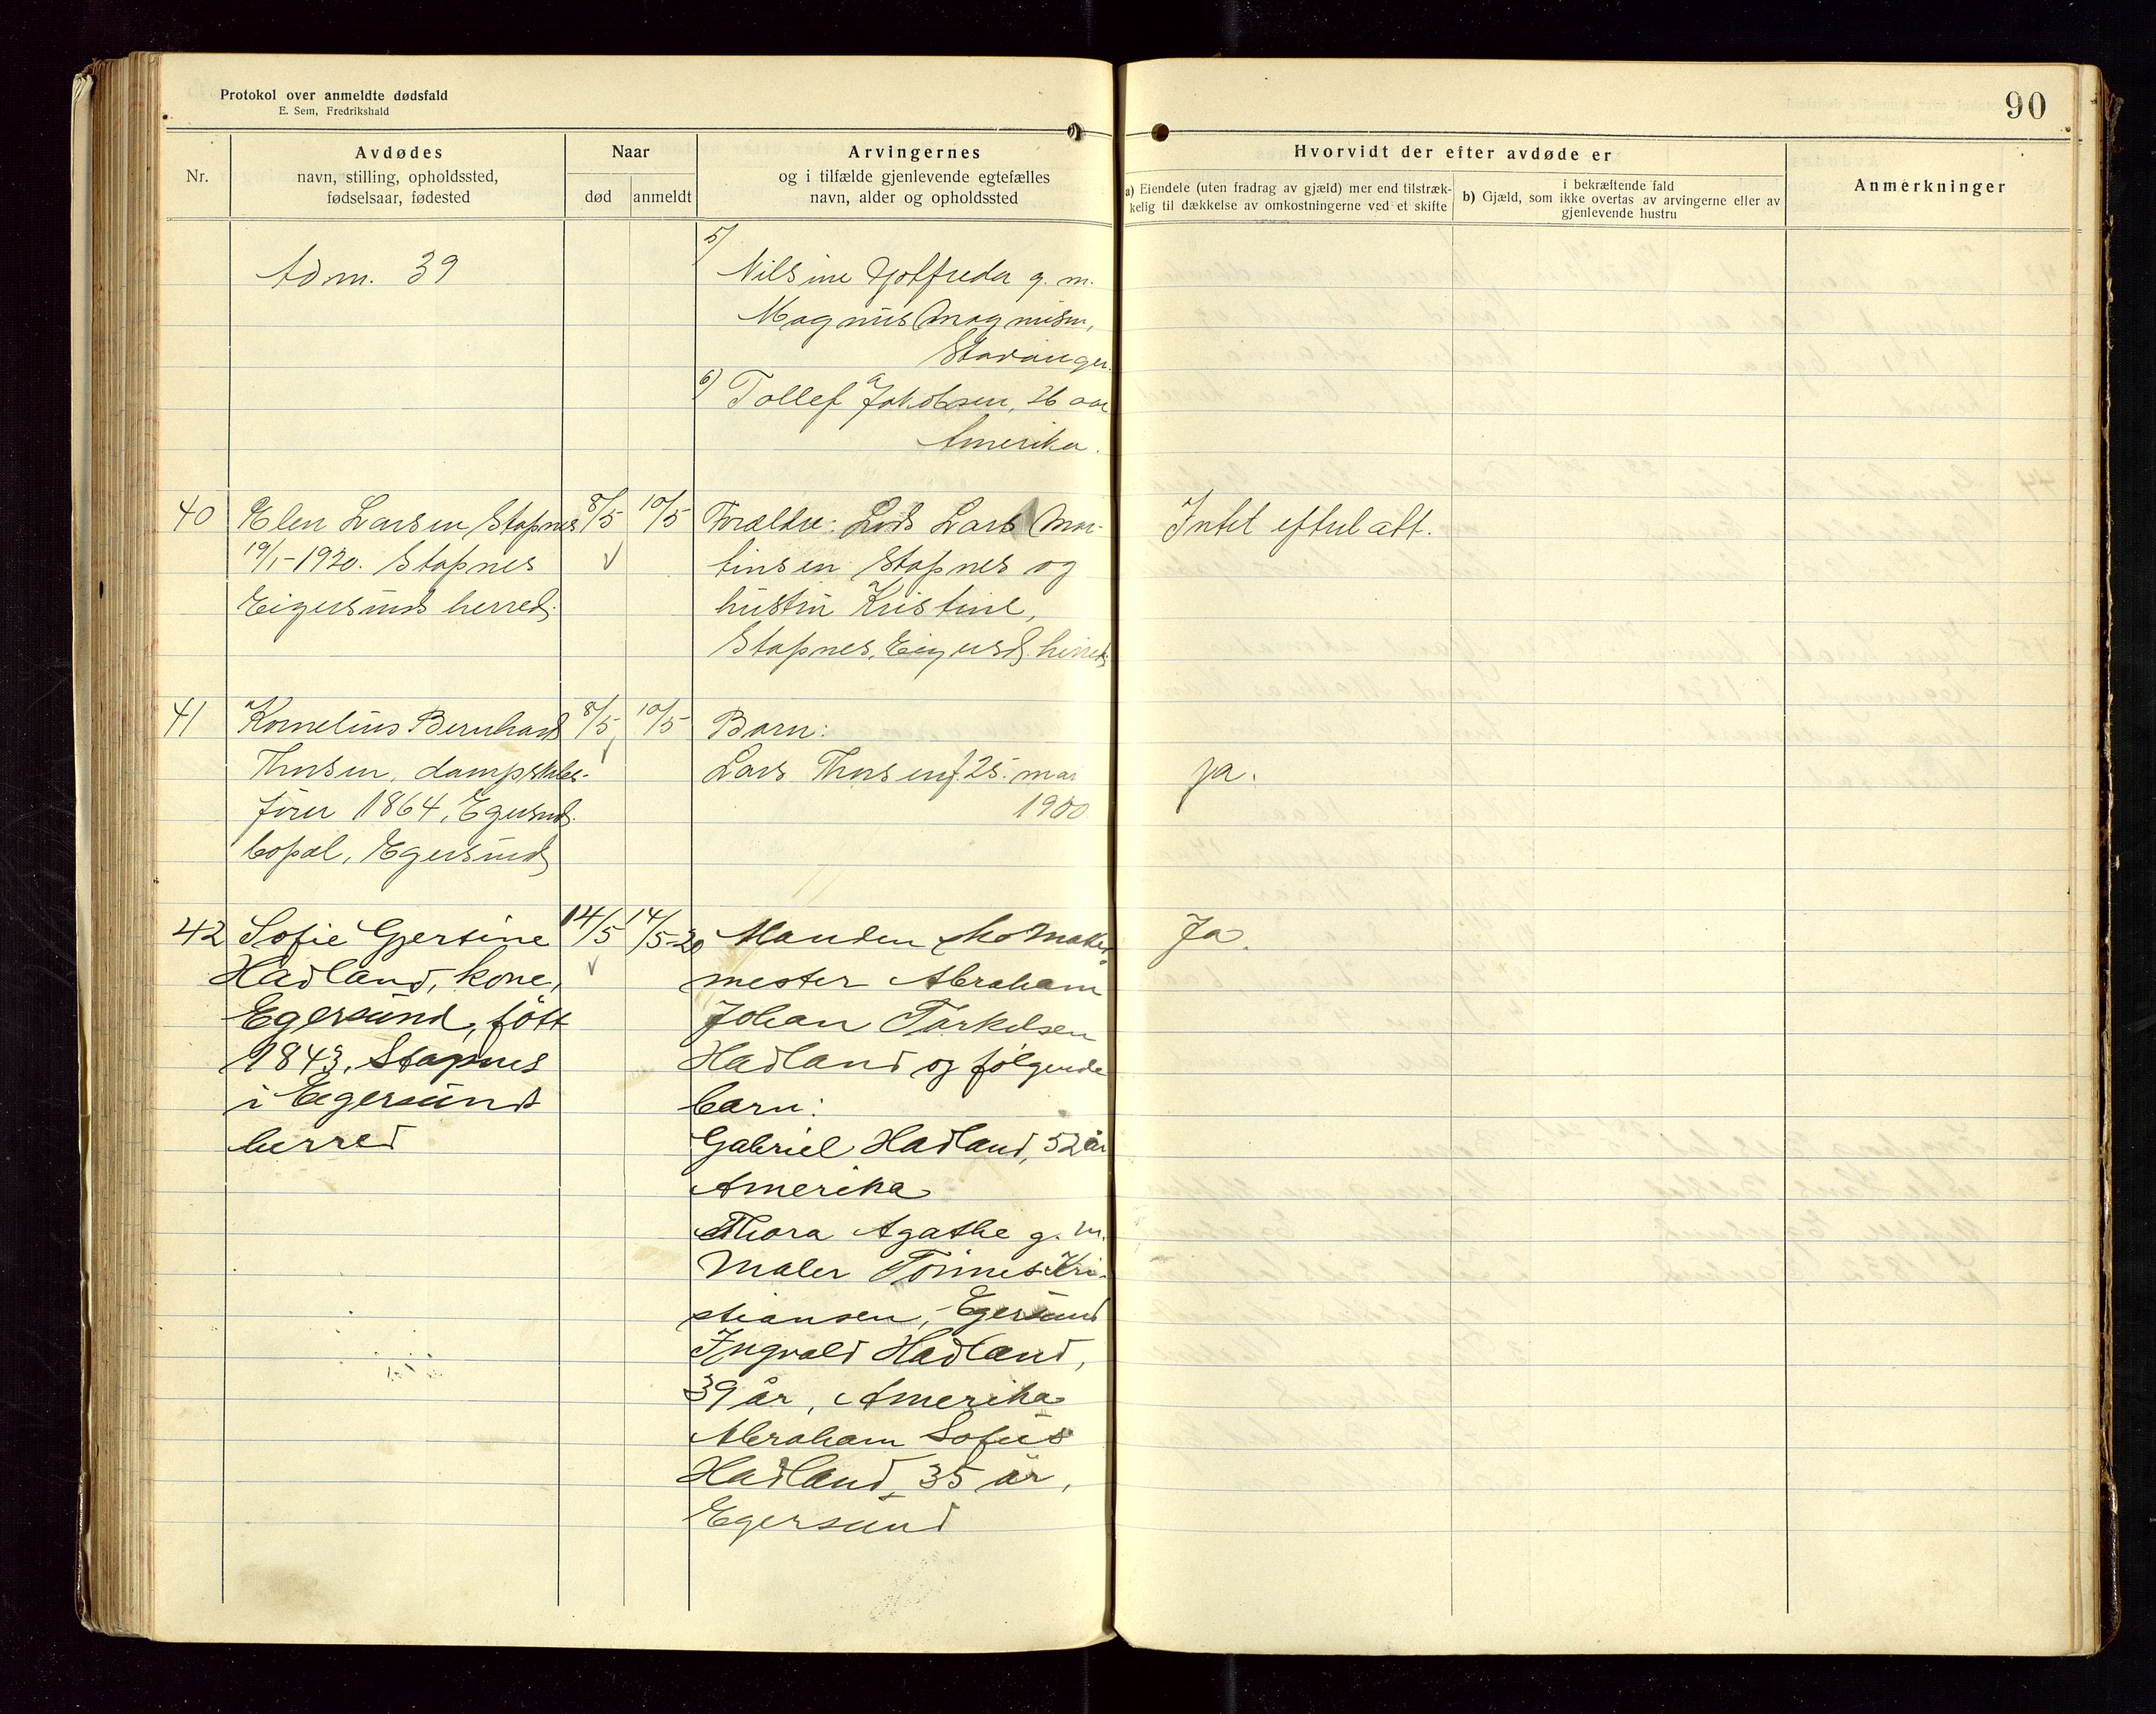 Protokol over anmeldte dødsfald
E. Sem, Fredrikshald
90
Nr.
Avdødes
navn, stilling, opholdssted,
fødselsaar, fødested
Naar
død
anmeldt
Arvingernes
og i tilfælde gjenlevende egtefælles
navn, alder og opholdssted
Hvorvidt der efter avdøde er
a) Eiendele (uten fradrag av gjæld) mer end tilstræk-
kelig til dækkelse av omkostningerne ved et skifte
i bekræftende fald
b) Gjæld, som ikke overtas av arvingerne eller av
gjenlevende hustru
Anmerkninger
Adm. 39
5/
Nilsine Gotfreda g. m.
Magnus Magnusen,
Stavanger.
6) Tollef Jakobsen, 26 aar
Amerika.
40
Elen Larsen Stapnes
19/1-1920. Stapnes
Eigersunds herred.
8/5
10/5
Foreldre: Lars Mar-
tinsen Stapnes og
hustru Kristine,
Stapnes, Eigersds. herred.
Intet efterlatt.
41
Kornelius Bernhard
Thrsen, dampskibs-
fører 1864, Egersund.
bopæl, Egersund
8/5
10/5
Barn:
Lars Thorsen f. 25. mai
1900
ja.
42
Sofie Gjertine
Hadland, kone,
Egersund, født
1843, Stapnes
i Egersund
herred
14/5
14/5-20
Manden skomaker-
mester Abraham
Johan Torkelsen
Hadland og følgende
barn:
Gabriel Hadland, 52 år
Amerika
Thora Agathe g. m.
Maler Tønnes Kri-
stiansen, Egersund
Ingvald Hadland,
39 år, Amerika
Abraham Sofus
Hadland, 35 år,
Egersund
Ja.